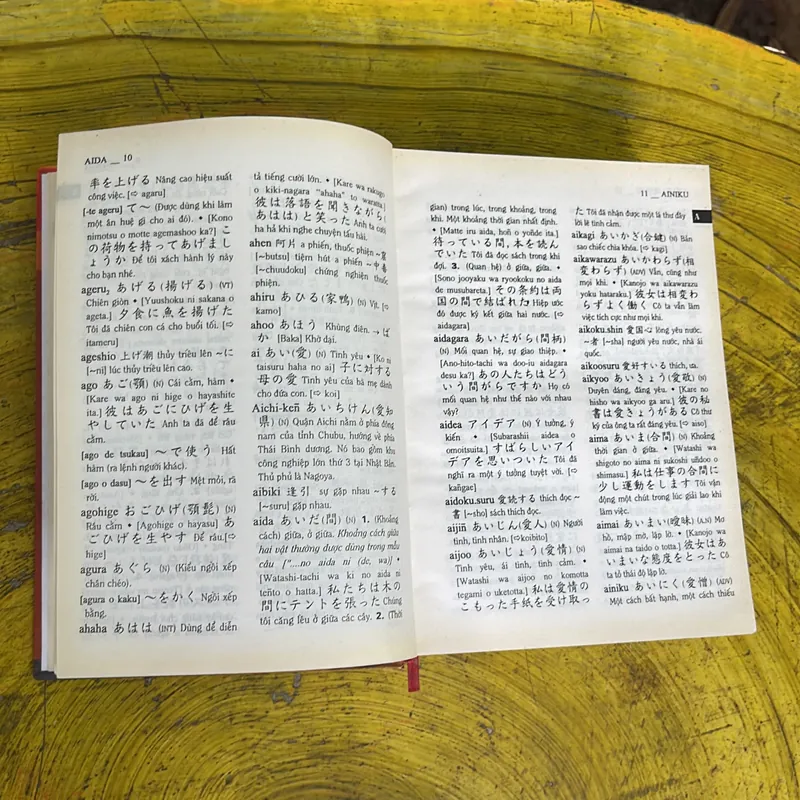 AIDA __ 10
率を上げる Nâng cao hiệu suất
công việc. [⇨ agaru]
[-te ageru] て〜 (Được dùng khi làm
một ân huệ gì cho ai đó). • [Kono
nimotsu o motte agemashoo ka?] こ
の荷物を持ってあげまし
ょうか Để tôi xách hành lý này
cho bạn nhé.
ageru, あげる(揚げる) (VT)
Chiên giòn • [Yuushoku ni sakana o
ageta.] 夕食に魚を揚げた
Tôi đã chiên con cá cho buổi tối. [⇨
itameru]
ageshio 上げ潮 thủy triều lên ~に
[~ni] lúc thủy triều lên cao.
ago あご(顎) (N) Cái cằm, hàm •
[Kare wa ago ni hige o hayashite
ita.] 彼はあごにひげを生
やしていた Anh ta đã để râu
cằm.
[ago de tsukau] 〜で使う Hất
hàm (ra lệnh người khác).
[ago o dasu] 〜を出す Mệt mỏi, rã
rời.
agohige おごひげ(顎髭) (N)
Râu cằm • [Agohige o hayasu] あ
ごひげを生やす Để râu.[⇨
hige]
agura あぐら (N) (Kiểu ngồi xếp
chân chéo).
[agura o kaku] 〜をかく Ngồi xếp
bằng.
ahaha あはは (INT) Dùng để diễn
tả tiếng cười lớn. • [Kare wa rakugo
o kiki-nagara "ahaha" to waratta.]
彼は落語を聞きながら(
あはは)と笑った Anh ta cười
ha hả khi nghe chuyện tấu hài.
ahen 阿片 a phiến, thuốc phiện ~窟
[~butsu] tiệm hút a phiến ~中毒
[~chuudoku] chứng nghiện thuốc
phiện.
ahiru あひる(家鴨) (N) Vịt. [⇨
kamo]
ahoo あほう Khùng điên. → ば
か [Baka] Khờ dại.
ai あい(愛) (N) Tình yêu • [Ko ni
taisuru haha no ai] 子に対する
母の愛 Tình yêu của bà mẹ dành
cho đứa con. [⇨ koi]
Aichi-keñ あいちけん(愛知
県) (N) Quận Aichi nằm ở phía đông
nam của tỉnh Chubu, hướng về phía
Thái Bình dương. Nó bao gồm khu
công nghiệp lớn thứ 3 tại Nhật Bản.
Thủ phủ là Nagoya.
aibiki 逢引 sự gặp nhau ~する
[~suru] gặp nhau.
aida あいだ(間) (N) 1. (Khoảng
cách) giữa, ở giữa. Khoảng cách giữa
hai vật thường được dùng trong mẫu
câu ["....no aida ni (de, wa)] •
[Watashi-tachi wa ki no aida ni
tento o hatta.] 私たちは木の
間にテントを張った Chúng
tôi căng lều ở giữa các cây. 2. (Thời
11 __ AINIKU
gian) trong lúc, trong khoảng, trong
khi. Một khoảng thời gian nhất định.
• [Matte iru aida, hoñ o yoñde ita.]
待っている間,本を読ん
でいた Tôi đọc sách trong khi
đợi. 3. (Quan hệ) ở giữa, giữa. •
[Sono jooyaku wa ryookoku no aida
de musubareta.] その条約は両
国の間で結ばれた Hiệp ước
đó được ký kết giữa hai nước. [⇨
aidagara]
aidagara あいだがら(間柄)
(N) Mối quan hệ, sự giao thiệp. •
[Ano-hito-tachi wa doo-iu aidagara
desu ka?] あの人たちはどう
いう間がらですか Họ có
mối quan hệ như thế nào với nhau
vậy?
aidea アイデア (N) Ý tưởng, ý
kiến • [Subarashii aidea o
omoitsuita.] すばらしいアイ
デアを思いついた Tôi đã
nghĩ ra một ý tưởng tuyệt vời. [⇨
kañgae]
aidoku.suru 愛読する thích đọc ~
書 [~sho] sách thích đọc.
aijiñ あいじん(愛人) (N) Người
tình, tình nhân. [⇨koibito]
aijoo あいじょう(愛情) (N)
Tình yêu, ái tình, tình cảm. •
[Watashi wa aijoo no komotta
tegami o uketotta.] 私は愛情の
こもった手紙を受け取っ
た Tôi đã nhận được một lá thư đầy
lời lẽ tình cảm.
A
aikagi あいかぎ(合鍵) (N) Bản
sao chiếc chìa khóa. [⇨ kagi]
aikawarazu あいかわらず(相
変わらず) (ADV) Vẫn, cũng như
mọi khi. • [Kanojo wa aikawarazu
yoku hataraku.] 彼女は相変わ
らずよく働く Cô ta vẫn làm
việc tích cực như mọi khi.
aikoku.shin 愛国心 lòng yêu nước.
~者 [~sha] người yêu nước, nhà ái
quốc.
aikoosuru 愛好すいる thích, ưa.
aikyoo あいきょう(愛敬) (N)
Duyên dáng, đáng yêu. • [Kare no
hisho wa aikyoo ga aru.] 彼の秘
書は愛きょうがある Cô thư
ký của ông ta rất đáng yêu. [⇨ aiso]
aima あいま(合間) (N) Khoảng
thời gian ở giữa. • [Watashi wa
shigoto no aima ni sukoshi uñdoo o
shimasu.] 私は仕事の合間に
少し運動をします Tôi vận
động một chút trong lúc giải lao khi
làm việc.
aimai あいまい(曖昧) (A.N) Mơ
hồ, mập mờ, lập lờ. • [Kanojo wa
aimai na taido o totta.] 彼女はあ
いまいな態度をとった Cô
ta tỏ thái độ lập lờ.
ainiku あいにく(愛憎) (ADV)
Một cách bất hạnh, một cách thiếu